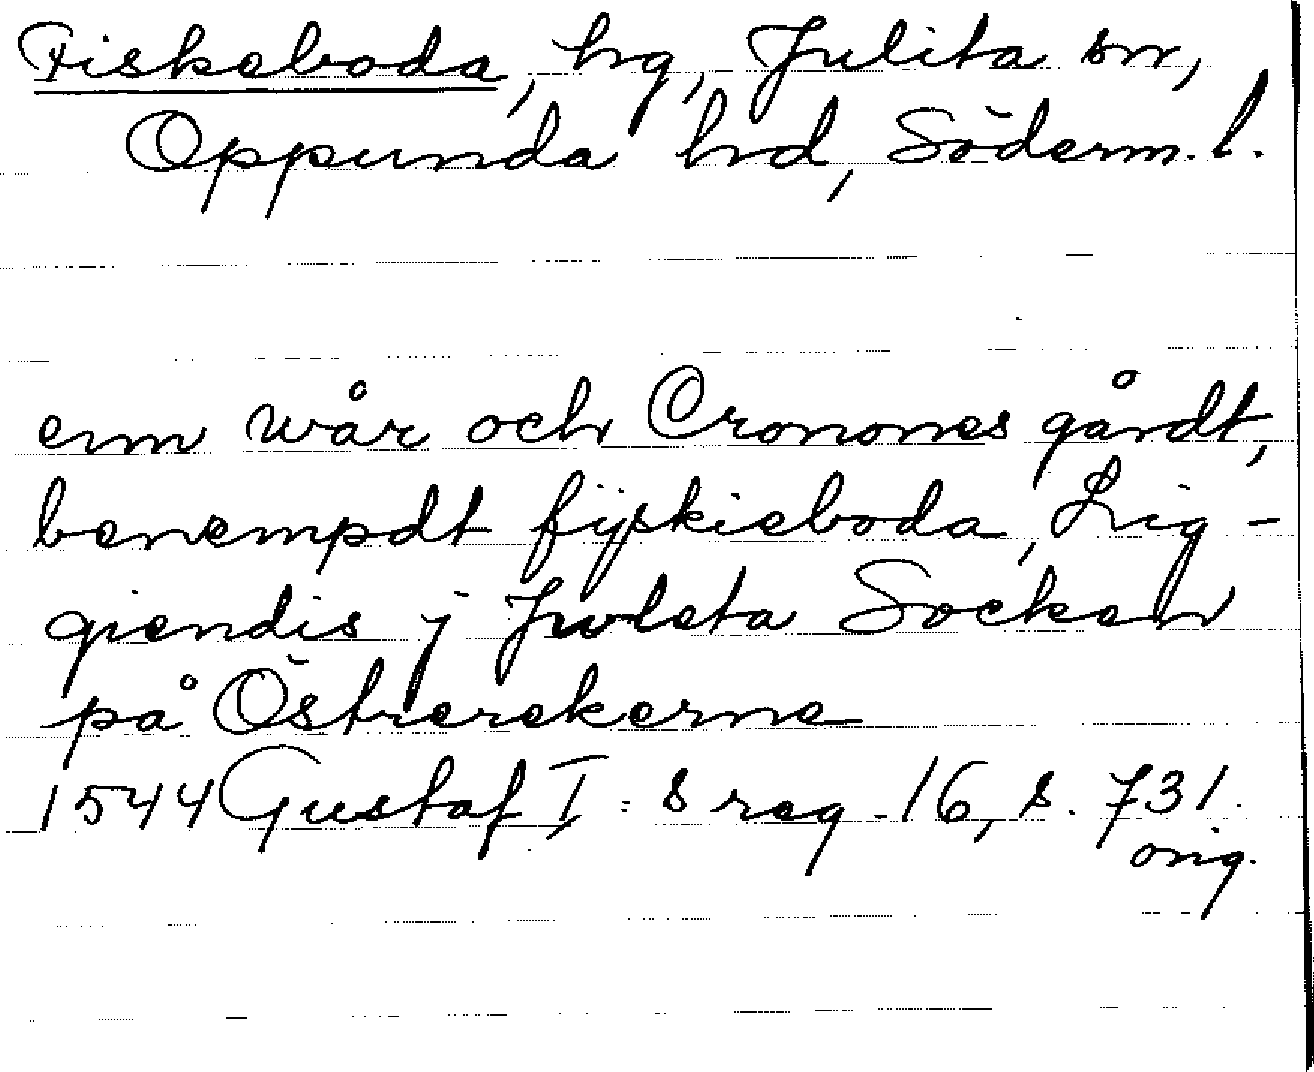 Fiskeboda, hg, Julita sn,
Oppunda hrd, Söderm. l.
enn wår och Cronones gårdt,
benempdt fijskieboda, Lig-
giendis j Juleta Socken
på Östrerekerne
1544 Gustaf I:s reg. 16, s. 731.
orig.